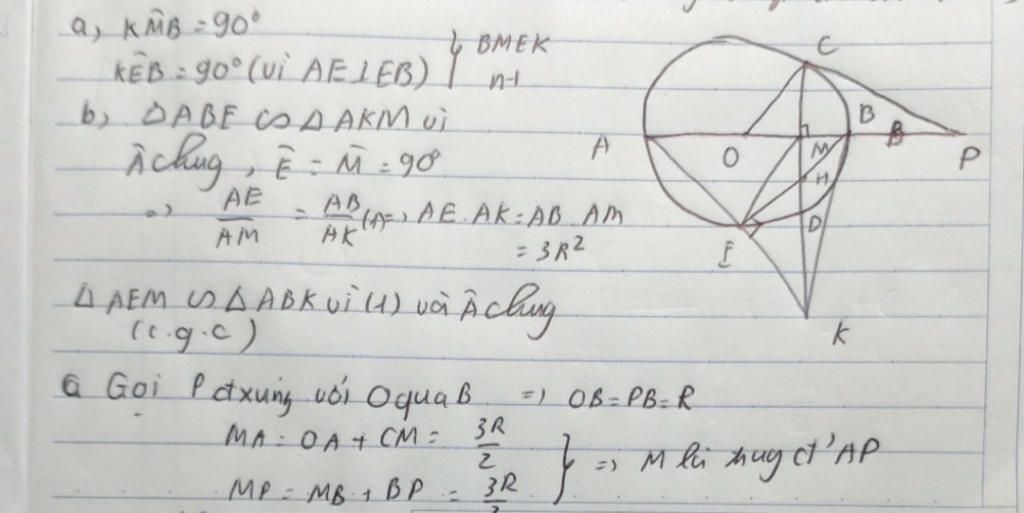 a, KM̂B = 90°
KÊB = 90° (vì AE⊥EB) } BMEK n-t
b, ΔABE ∽ Δ AKM vì
Â chug, Ê = M̂ = 90°
=> AE/AM = AB/AK (1) => AE.AK = AB.AM
= 3R²
Δ AEM ∽ Δ ABK vì (1) và Â chug
(c.g.c)
C Gọi P đxứng với O qua B => OB=PB=R
MA = OA + CM = 3R/2
MP = MB + BP = 3R/2 } => M là trug đ' AP
C
A
O
M
B
B
P
H
D
E
K